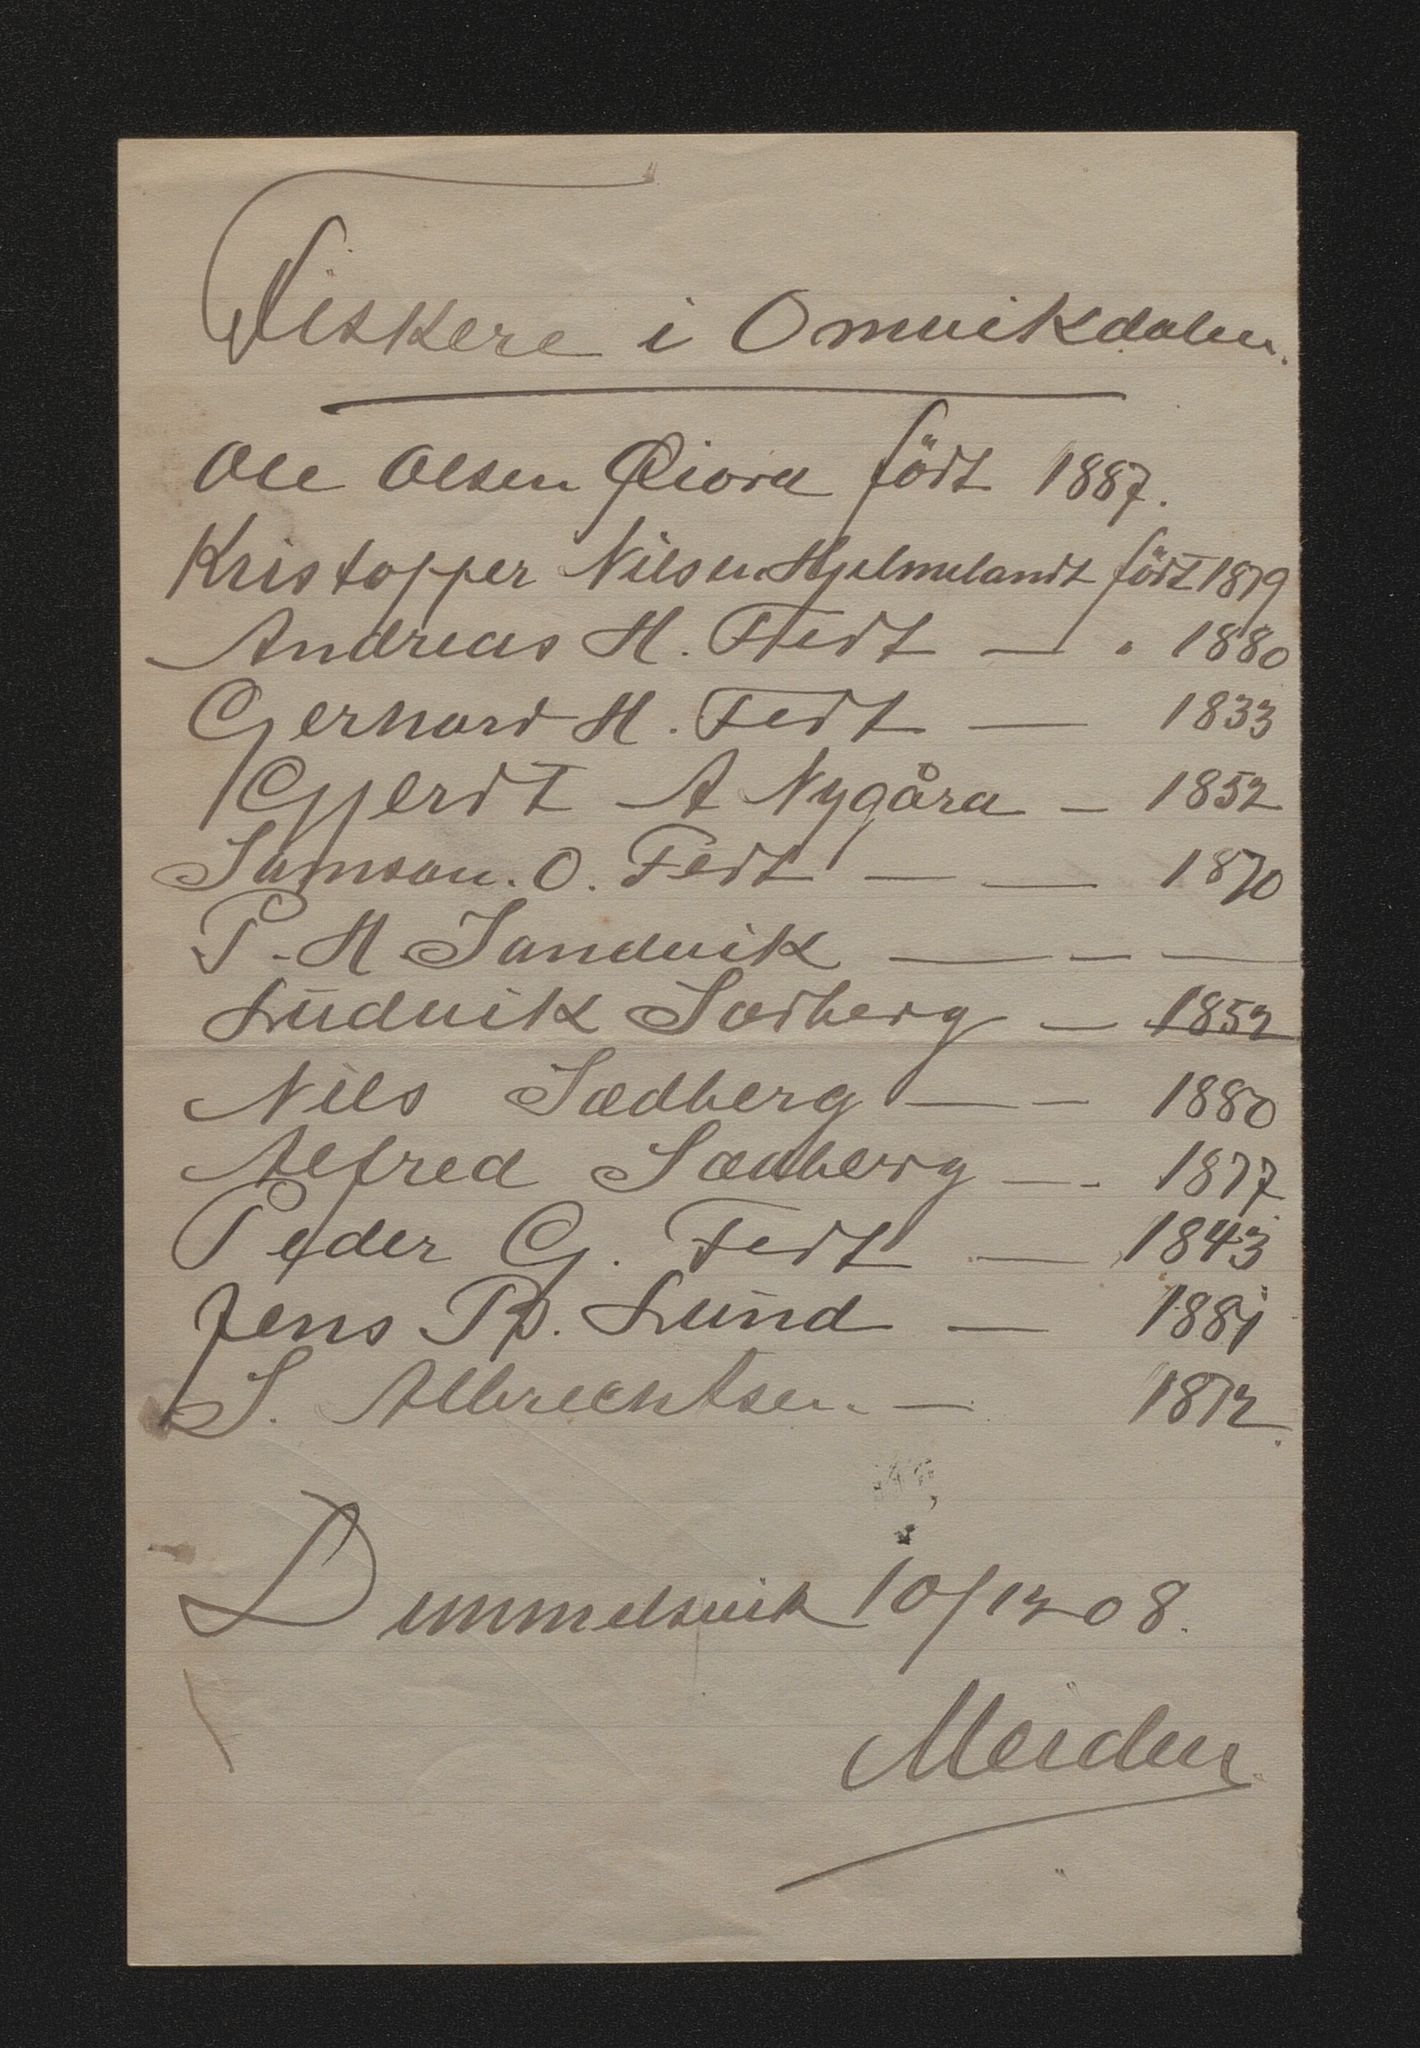 Fiskere i Omvikdalen.
Ole Olsen födt 1887.
Kristoffer Nilsen Hjelmelandt födt 1879
Andreas H. Fedt — " 1880
Gerhard H. Fedt — 1833
Gjerdt A Nygåra — 1852
Samson. O. Fedt — — 1870
P. H. Sandvik — — —
Ludvik Sædberg — 1852
Nils Sædberg — — 1880
Alfred Sædberg — - 1877
Peder G. Fedt — 1843
Jens P. Lund — 1881
S. Albrechtsen — 1872.
Dimmelsvik 10/12 08.